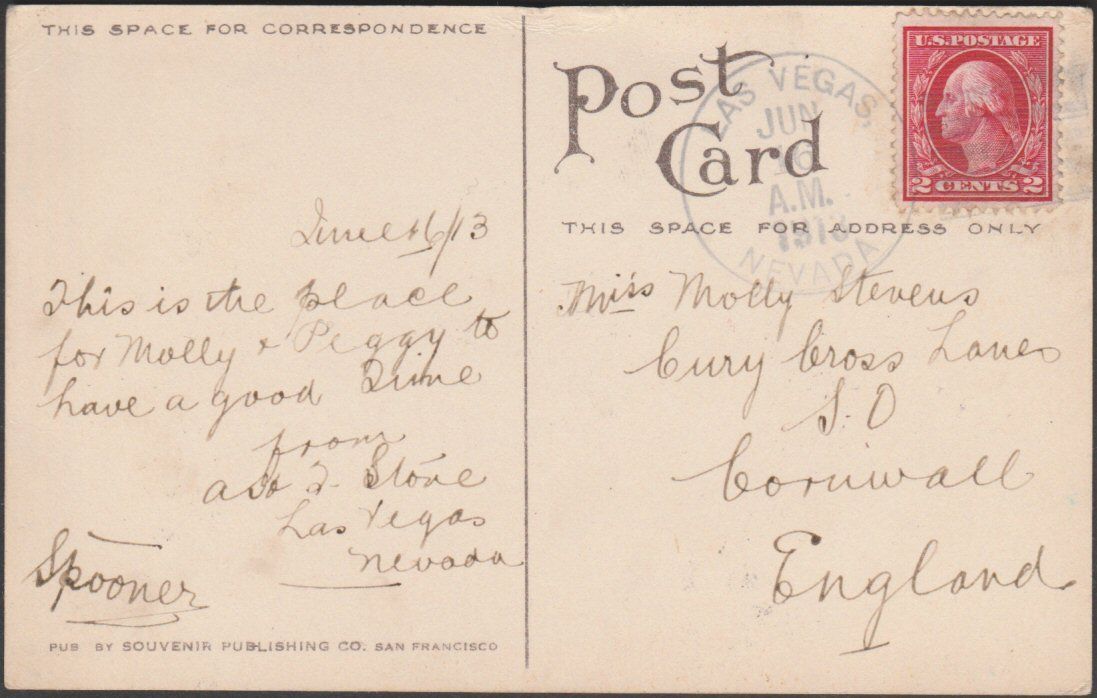 THIS SPACE FOR CORRESPONDENCE
Post
Card
U.S. POSTAGE
2 CENTS 2
LAS VEGAS,
JUN
16
A.M.
1913
NEVADA
THIS SPACE FOR ADDRESS ONLY
June 16/13
This is the place
for Molly & Peggy to
have a good Time
from
Stone
Las Vegas
Nevada
Spooner
Miss Molly Stevens
Cury Cross Lanes
S.O
Cornwall
England
PUB BY SOUVENIR PUBLISHING CO. SAN FRANCISCO